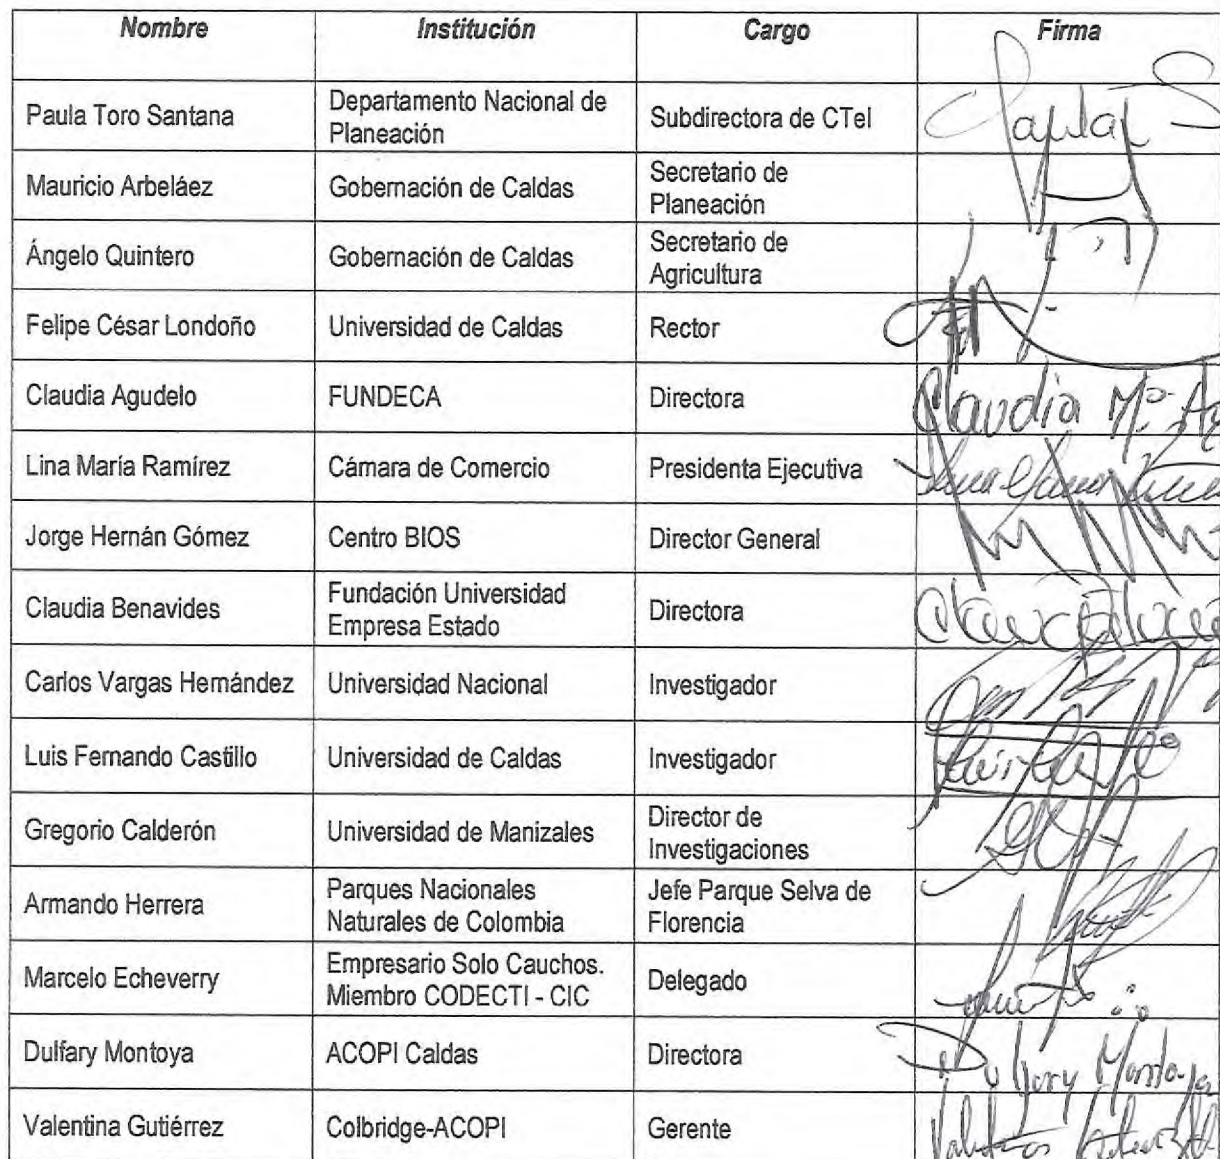 Nombre Institución Cargo Firma
Paula Toro Santana Departamento Nacional de Planeación Subdirectora de CTeI
Mauricio Arbeláez Gobernación de Caldas Secretario de Planeación
Ángelo Quintero Gobernación de Caldas Secretario de Agricultura
Felipe César Londoño Universidad de Caldas Rector
Claudia Agudelo FUNDECA Directora Claudia Mª Ag
Lina María Ramírez Cámara de Comercio Presidenta Ejecutiva
Jorge Hernán Gómez Centro BIOS Director General
Claudia Benavides Fundación Universidad Empresa Estado Directora
Carlos Vargas Hernández Universidad Nacional Investigador
Luis Fernando Castillo Universidad de Caldas Investigador
Gregorio Calderón Universidad de Manizales Director de Investigaciones
Armando Herrera Parques Nacionales Naturales de Colombia Jefe Parque Selva de Florencia
Marcelo Echeverry Empresario Solo Cauchos. Miembro CODECTI - CIC Delegado
Dulfary Montoya ACOPI Caldas Directora Dulfary Montoya
Valentina Gutiérrez Colbridge-ACOPI Gerente